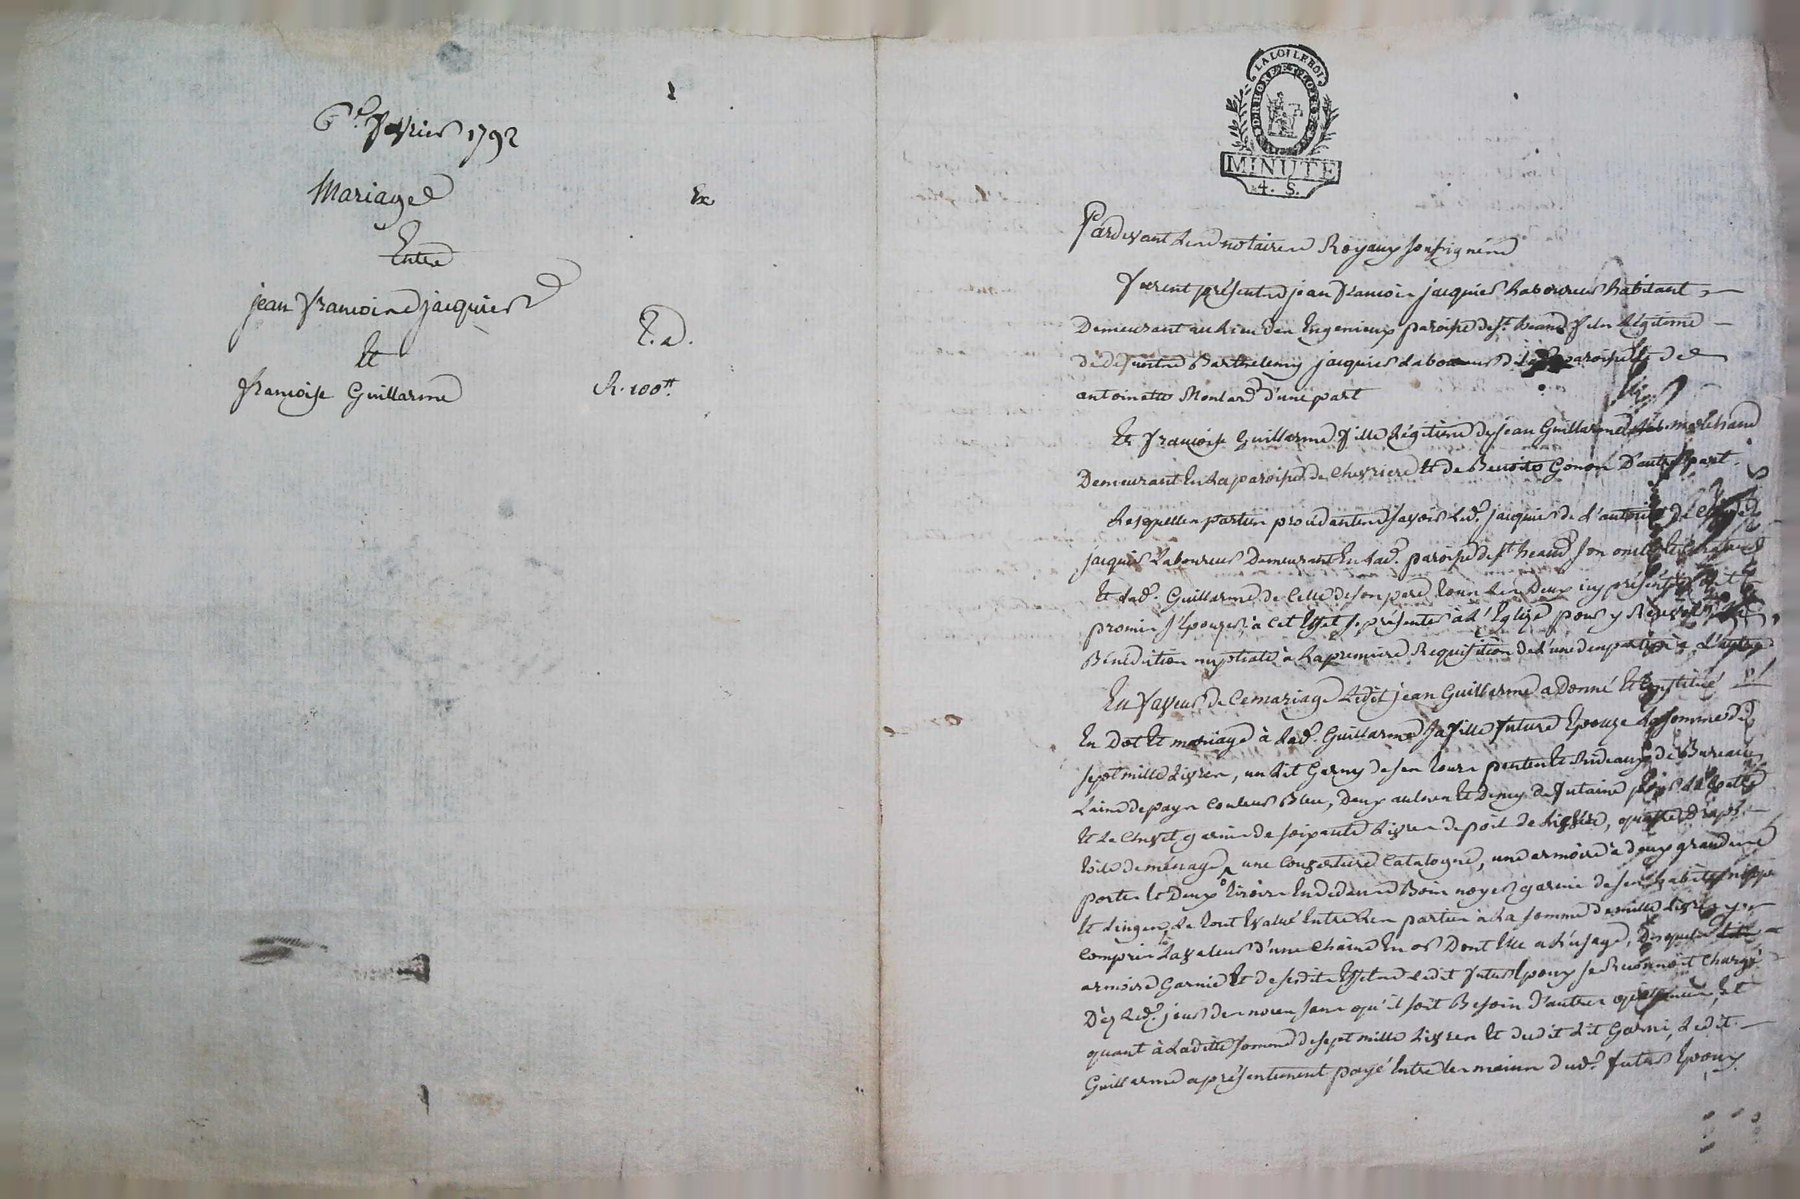 6e fevrier 1792
Mariage
Entre
jean francoise jacquier
Et
francoise Guillarme
Ex
R. 100tt
LA LOI LE ROI
DEP. RHONE ET LOIRE
MINUTE
4. S.
Pardevant Les notaires Royaux soussignés
furent présents jean francois jacquier Laboureur habitant
Demeurant au Lieu des Ingenieux paroisse de st. heand fils Légitime
de défunt Barthelemy jacquier Laboureur de paroisse Et de
antoinette Montard d'une part
Et francoise Guillarme fille Légitime de jean Guillarme marchand
Demeurant En La paroisse de Chevrieres Et de Benoite Gonon D'autre part
Lesquelles parties procédantes savoir Led. jacquier de L'autorité de
jacquier Laboureur Demeurant En Lad. paroisse de st heand son oncle
Et Lad. Guillarme de Celle de son pere tous Les Deux icy présents
promis s'Epouser, à cet Effet se présenter à L'Eglise pour y Recevoir
Bénédiction nuptiale à La premiere Requisition de L'une des parties à L'autre
En faveur de Ce mariage Ledit jean Guillarme a Donné Et Constitué
En Dot Et mariage à Lad. Guillarme sa fille future Epouse La somme de
sept mille Livres, un Lit Garny de ses tours pentes Et Rideaux de Bureau
Laine de pays Couleur Bleu, Deux aulnes Et Demy de futaine pour La
Et Le Chevet garnie de soixante Livres de poil de, quatre draps
toile de menage, une Couverture Catalogne, une armoire à deux grandes
portes Et Deux tiroirs En dedans Bois noyer garnie de ses habits nippes
Et Linges, Le tout Evalué Entre Les parties à La somme de mille Livres y
compris La valeur d'une Chaine En or Dont Elle a L'usage, Desquels
armoire Garnie Et de sesdits Effets Ledit futur Epoux se Reconnoit Chargé
Dès Led. jour des noces sans qu'il soit Besoin d'autres quittances, Et
quant à Ladite somme de sept mille Livres Et dudit Lit Garni, Ledit
Guillarme a présentement payé Entre Les mains dud. futur Epoux